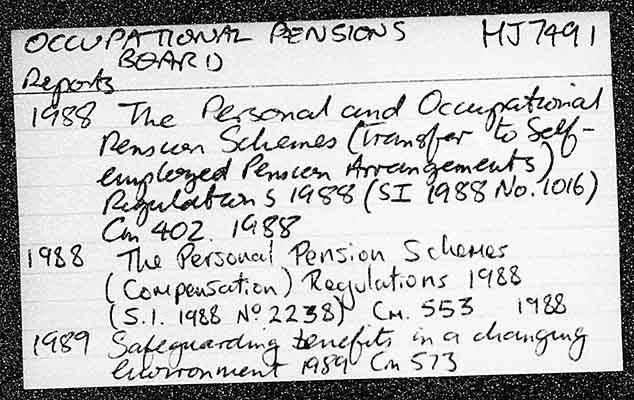 OCCUPATIONAL PENSIONS HJ7491
BOARD
Reports
1988 The Personal and Occupational
Pension Schemes (Transfer to Self-
employed Pension Arrangements)
Regulations 1988 (SI 1988 No. 1016)
Cm 402. 1988
1988 The Personal Pension Schemes
(Compensation) Regulations 1988
(S.I. 1988 No 2238) Cm. 553 1988
1989 Safeguarding benefits in a changing
environment 1989 Cm 573